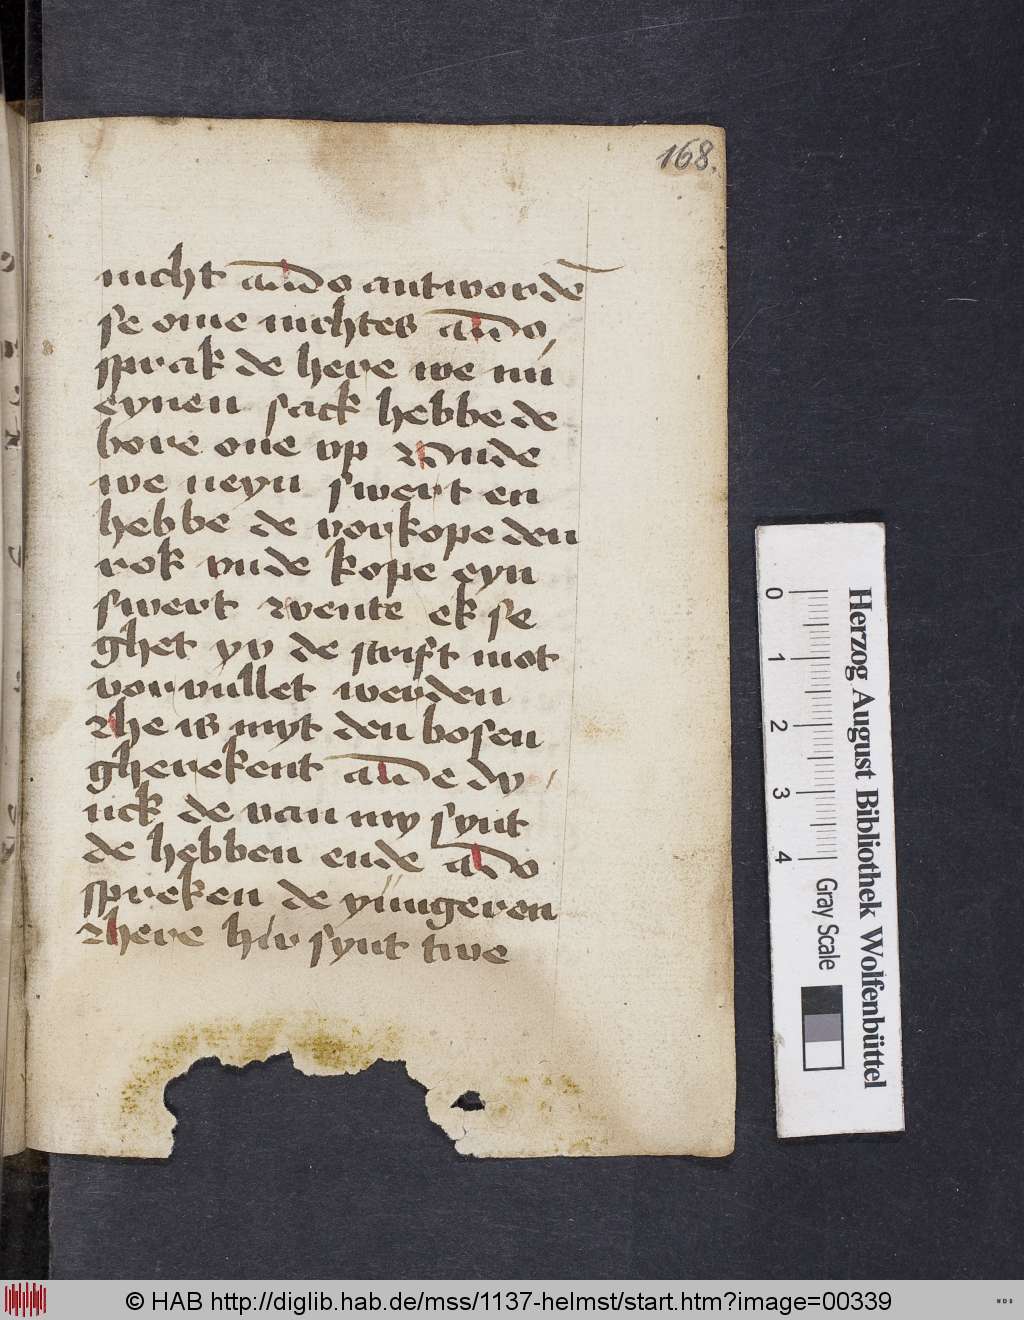 168.
nicht Auͤdo antwordē
se ome nichtes Do
sprak de here we nu
eynen sack hebbe de
bore one vp Unde
we neyn swert en
hebbe de vorkope den
rok vnde kope eyn
swert wente ek se
ghet yv de scrift mot
vorvullet werden
He is myt den bosen
gherekent de dy
nck de van my synt
de hebben ende Do
spreken de yungeren
Here hir synt twe
Herzog August Bibliothek Wolfenbüttel
0 1 2 3 4 Gray Scale
© HAB http://diglib.hab.de/mss/1137-helmst/start.htm?image=00339